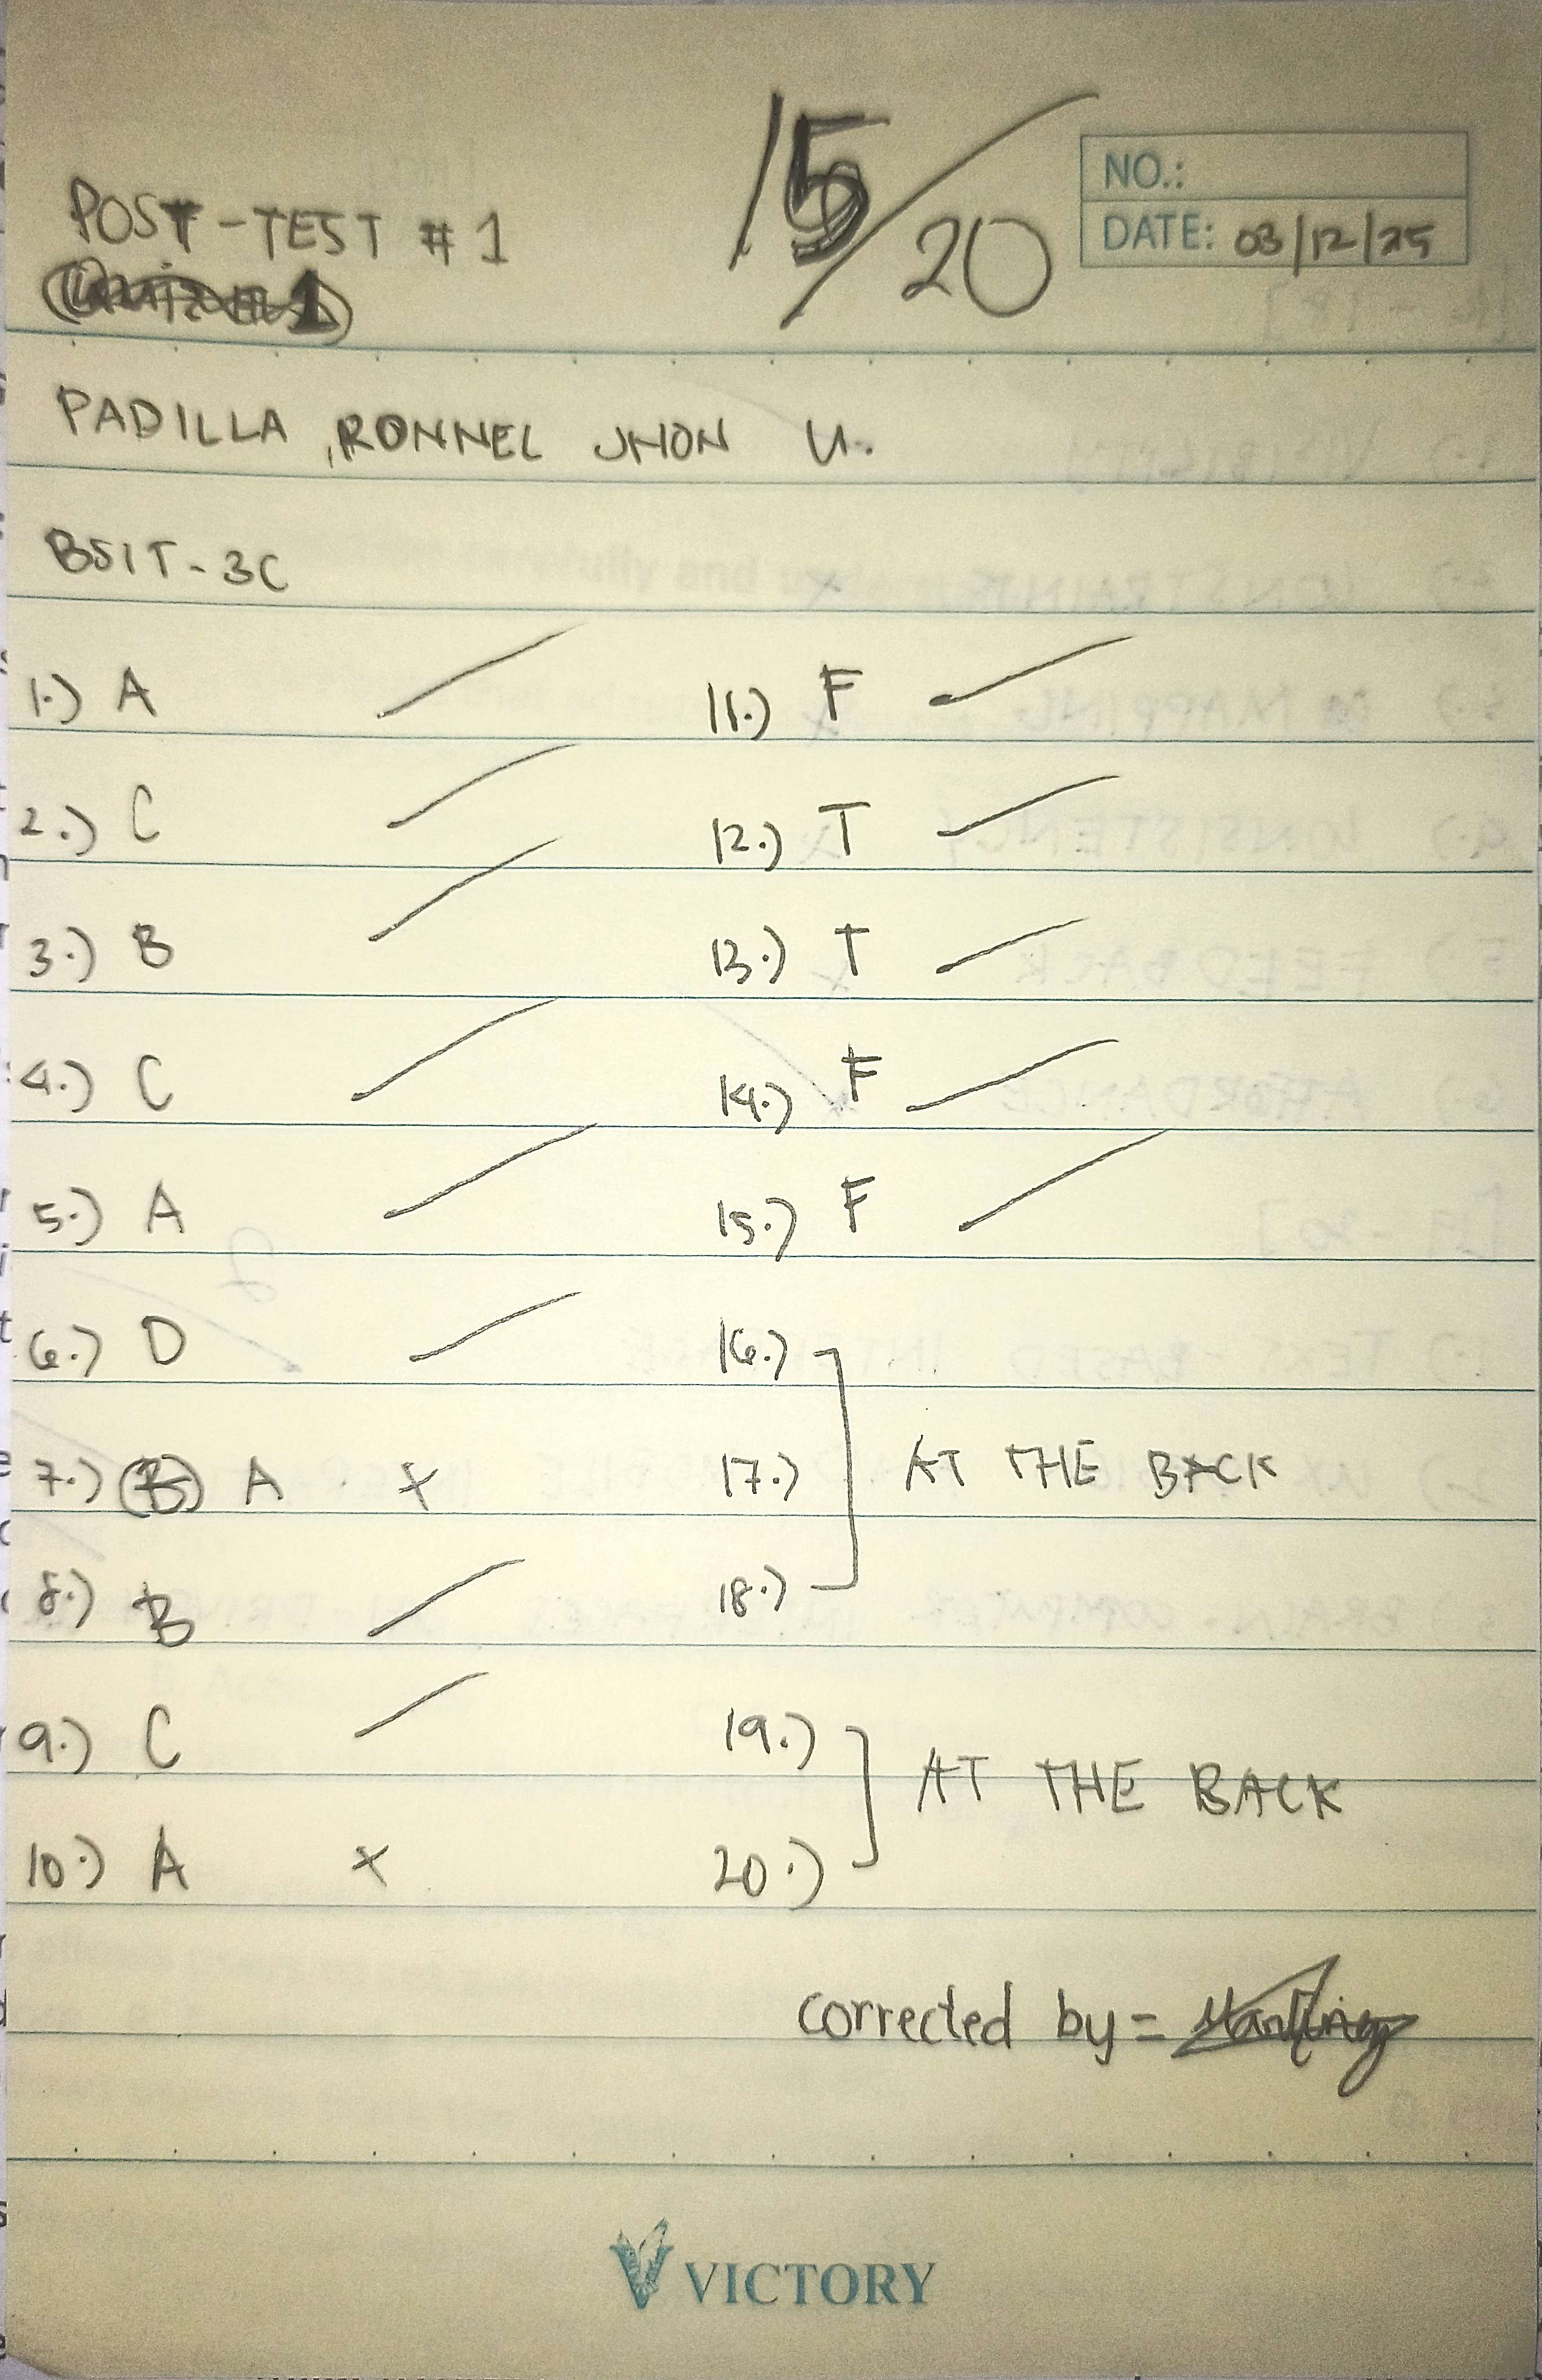 POST-TEST #1
15/20
NO.:
DATE: 03/12/25
PADILLA, RONNEL JHON U.
BSIT-3C
1.) A
2.) C
3.) B
4.) C
5.) A
6.) D
7.) (B) A x
8.) B
9.) C
10.) A x
11.) F
12.) T
13.) T
14.) F
15.) F
16.)
17.) AT THE BACK
18.)
19.)
AT THE BACK
20.)
corrected by =
VICTORY